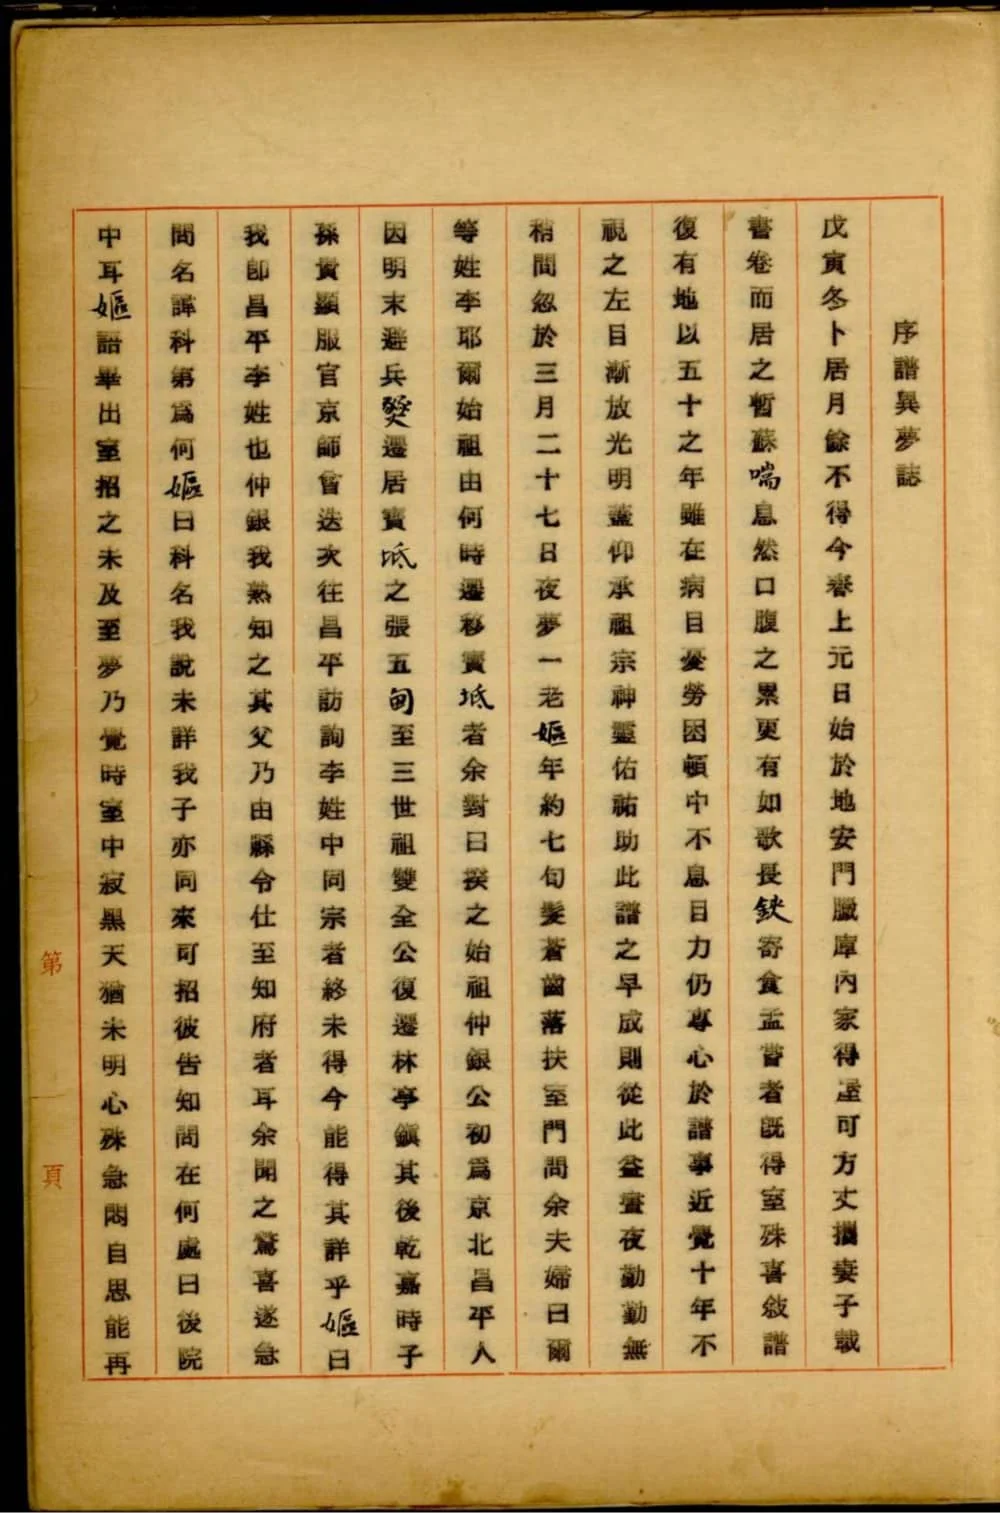 序譜異夢誌
戊寅冬卜居月餘不得今春上元日始於地安門臘庫內家得屋可方丈攜妻子載
書卷而居之暫蘇喘息然口腹之累更有如歌長鋏寄食孟嘗者既得室殊喜敘譜
復有地以五十之年雖在病目憂勞困頓中不息目力仍專心於譜事近覺十年不
視之左目漸放光明蓋仰承祖宗神靈佑祐助此譜之早成則從此益晝夜勤勤無
稍間忽於三月二十七日夜夢一老嫗年約七旬髮蒼齒落扶室門問余夫婦曰爾
等姓李耶爾始祖由何時遷移寶坻者余對曰揆之始祖仲銀公初為京北昌平人
因明末避兵燹遷居寶坻之張五甸至三世祖雙全公復遷林亭鎮其後乾嘉時子
孫貴顯服官京師曾迭次往昌平訪詢李姓中同宗者終未得今能得其詳乎嫗曰
我卽昌平李姓也仲銀我熟知之其父乃由縣令仕至知府者耳余聞之驚喜遂急
問名諱科第為何嫗曰科名我說未詳我子亦同來可招彼告知問在何處曰後院
中耳嫗語畢出室招之未及至夢乃覺時室中寂黑天猶未明心殊急悶自思能再
第 頁